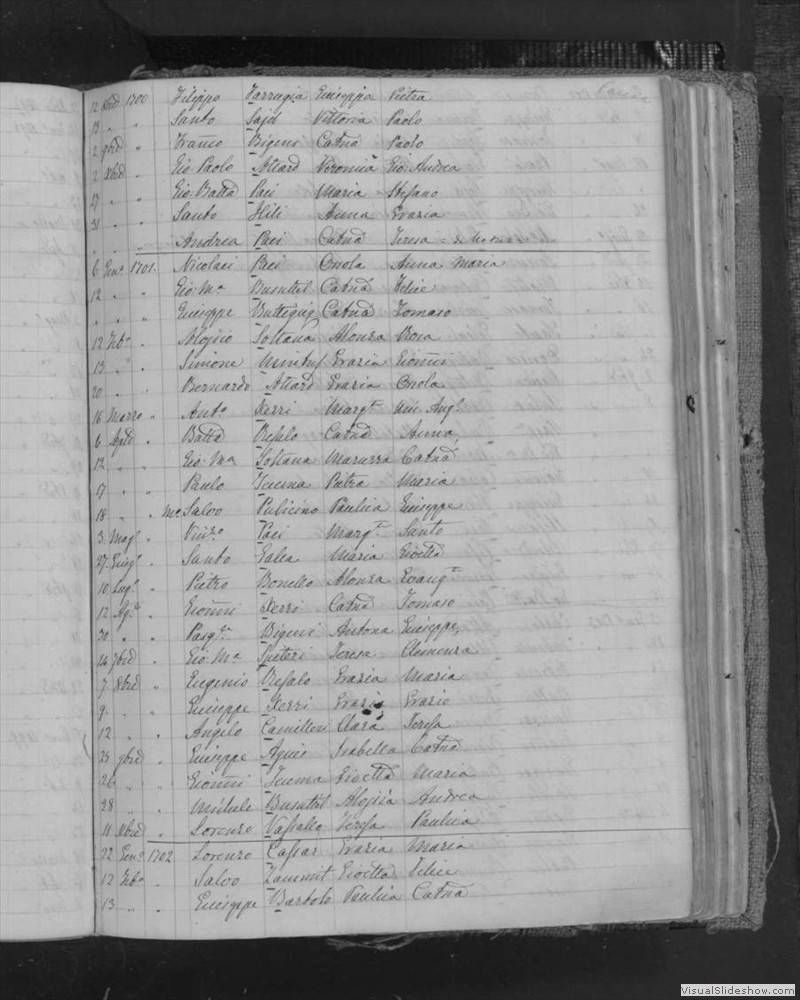 12 Xbre 1700 Filippo Farrugia Giuseppa Pietra
13 " " Santo Sajd Vittoria Paolo
2 9bre " Franco Bigeni Catnā Paolo
2 Xbre " Gio Paolo Attard Veronica Gio: Andrea
29 " " Gio Batta Paci Maria Stefano
31 " " Santo Hili Anna Grazia
" " " Andrea Paci Catnā Teresa
6 Genº 1701. Nicolaci Paci Gnola Anna Maria
12 " " Gio Mª Busuttil Catnā Felice
" " " Giuseppe Buttigieg Catnā Tomaso
12 Febº " Aloisio Soltana Alonza Rosa
13 " " Simone Grazia Giomni
20 " " Bernardo Attard Grazia Gnola
16 Marzo " Antº Xerri Margta
6 Aple " Batta Refalo Catnā Anna
12 " " Gio: Mª Soltana Maruzza Catnā
17 " " Paulo Teuma Pietra Maria
18 " " Mº Salvo Pulicino Paulica Giuseppe
3 Magº " Vinzº Paci Margta Santo
27 Giugº " Santo Galea Maria Gioetta
10 Lugº " Pietro Bonello Alonza Evangta
12 Agto " Giomni Xerri Catnā Tomaso
30 " " Pasqle Bigeni Antona Giuseppe
24 7bre " Gio Mª Spiteri Teresa Clemenza
7 8bre " Eugenio Refalo Grazia Maria
9 " " Giuseppe Xerri Grazia Grazio
12 " " Angelo Camilleri Clara Teresa
25 9bre " Giuseppe Agius Isabella Catnā
26 " " Giomni Teuma Gioetta Maria
28 " " Michele Busuttil Aloisia Andrea
11 Xbre " Lorenzo Vassallo Teresa Paulica
22 Genº 1702 Lorenzo Cassar Grazia Maria
12 Febº " Salvo Zammit Gioetta Felice
13 " " Giuseppe Bartolo Paulica Catnā
VisualSlideshow.com